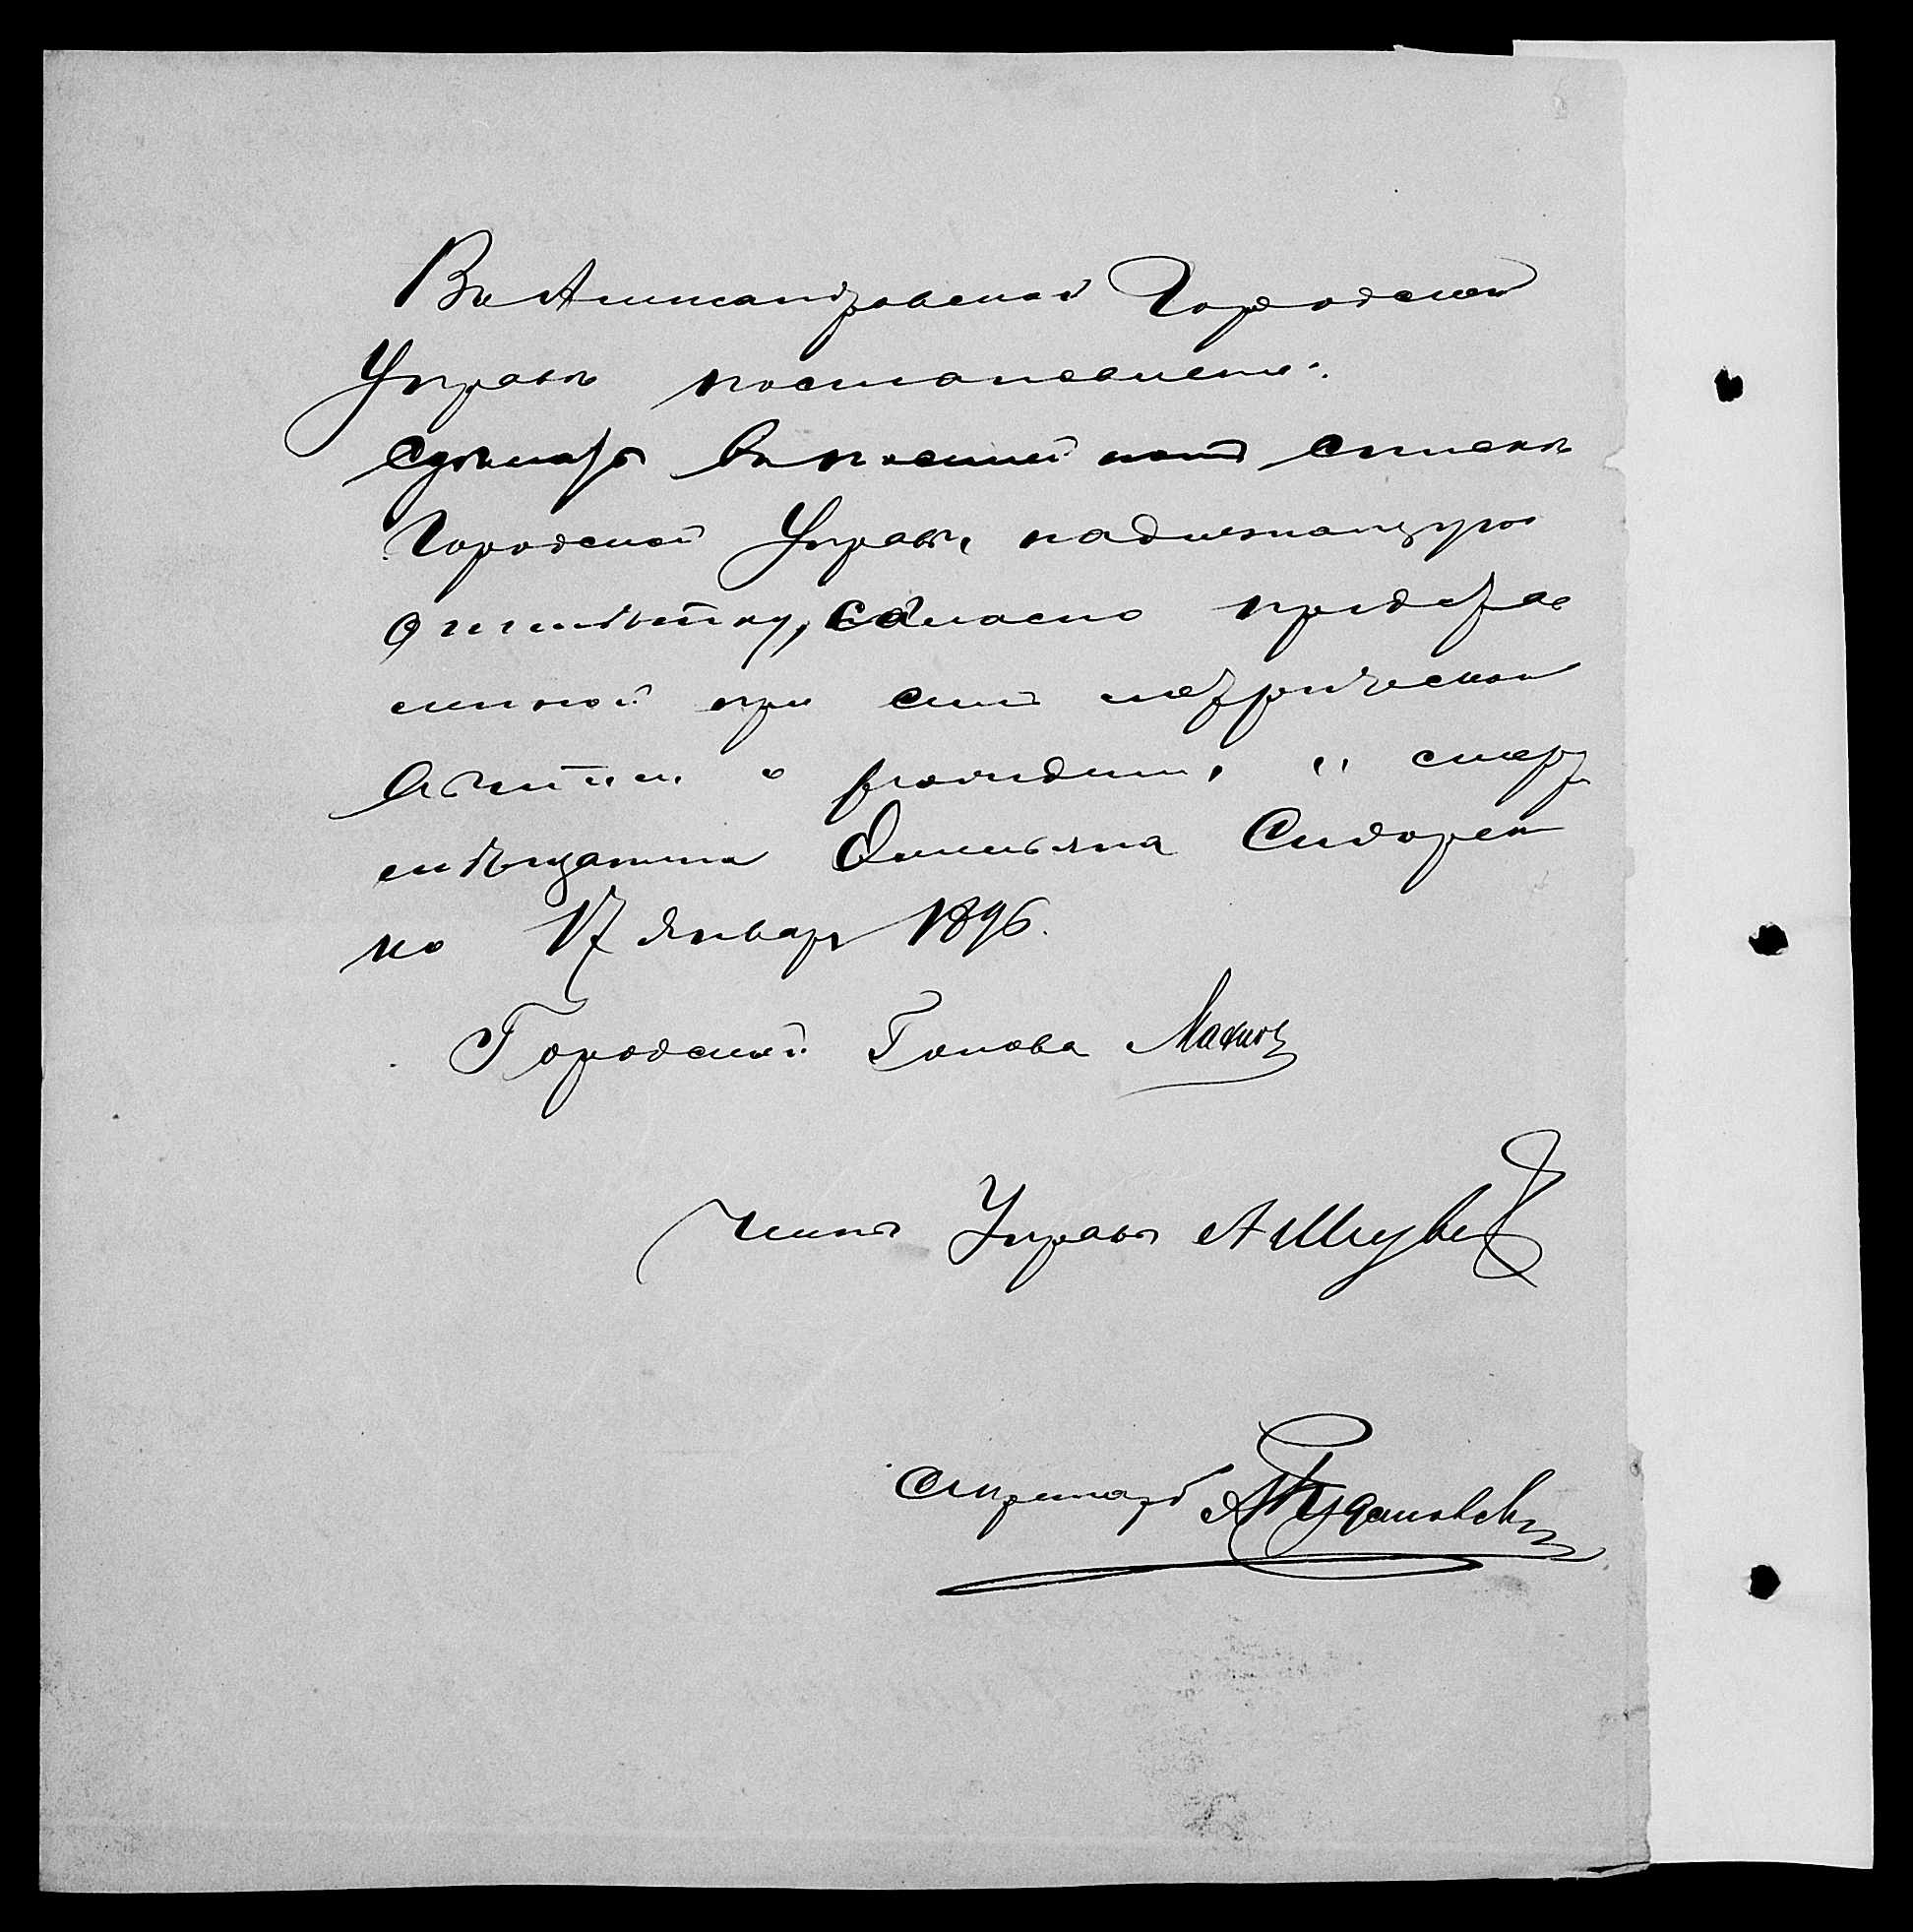 Въ Александровской Городской
Управѣ постановлено:
сдѣлать въ посемейномъ спискѣ
Городской Управы надлежащую
отмѣтку, согласно представ
ленной при семъ метрической
выписи о рожденіи и смерт
мѣщанина Емельяна Сидорен
ко 17 Январ 1896.
Городской Голова
Членъ Управы
Секретарь